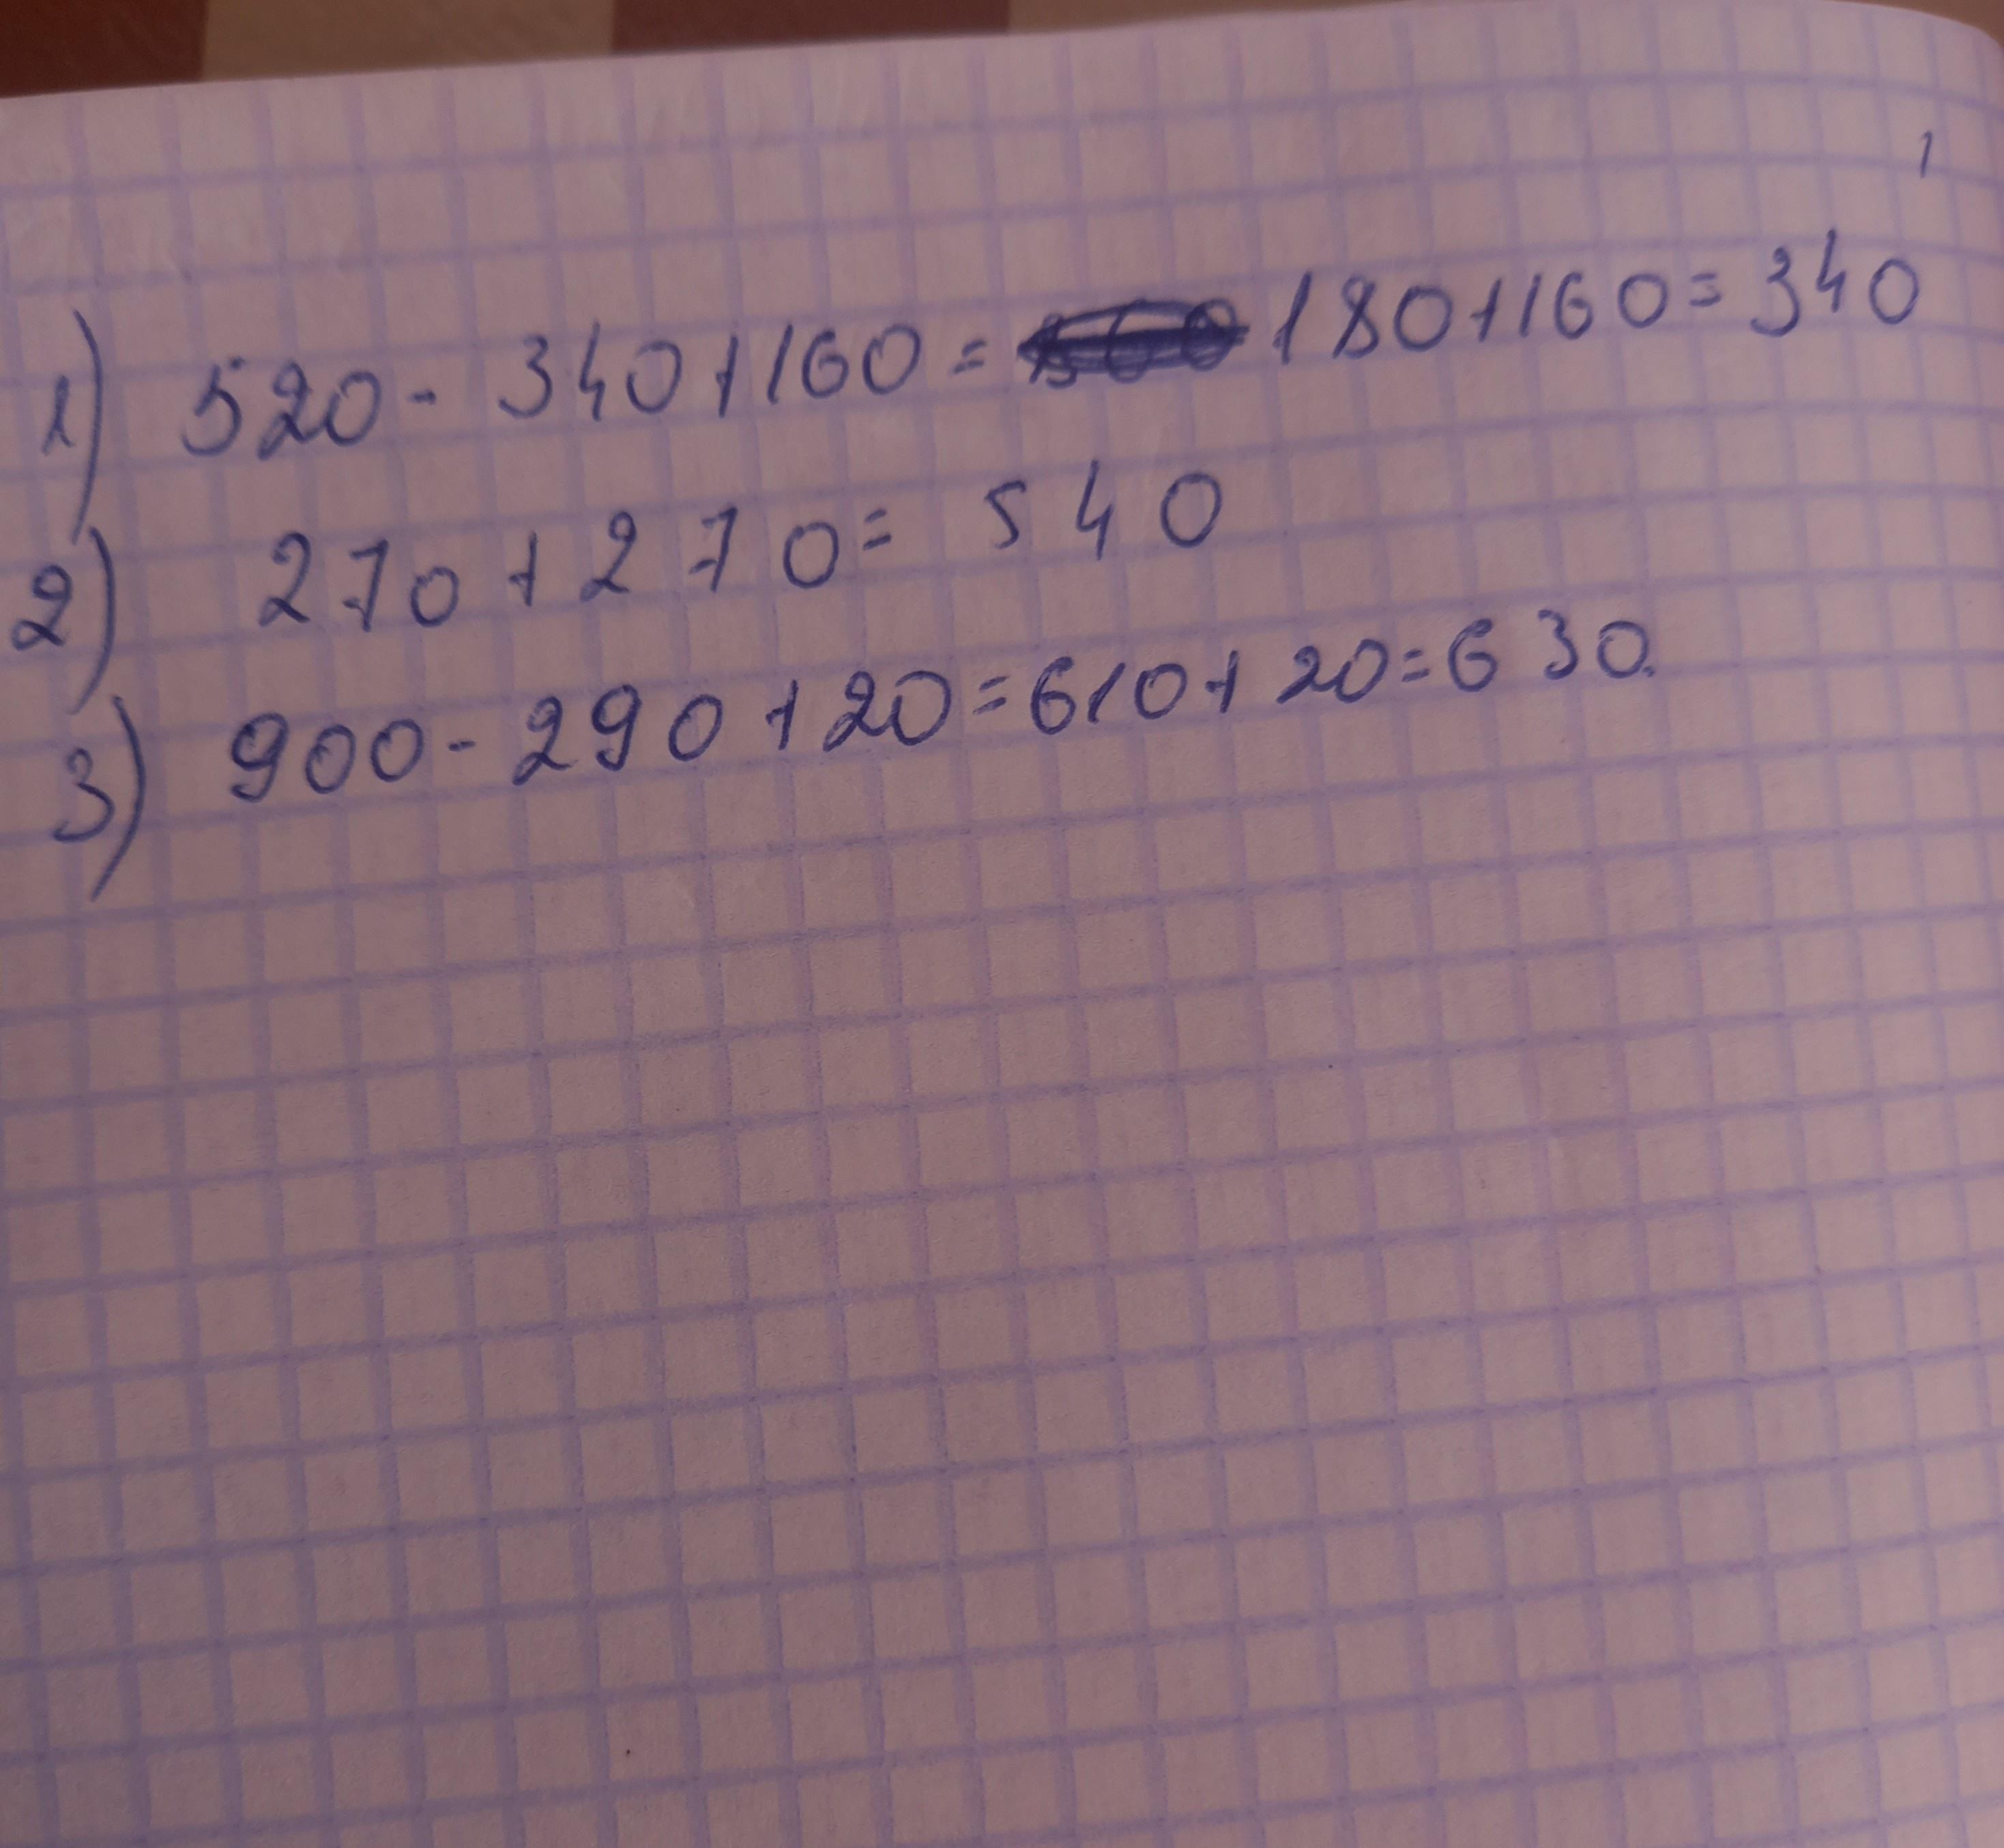 1
1) 520 - 340 + 160 = 180 + 160 = 340
2) 270 + 270 = 540
3) 900 - 290 + 20 = 610 + 20 = 630.